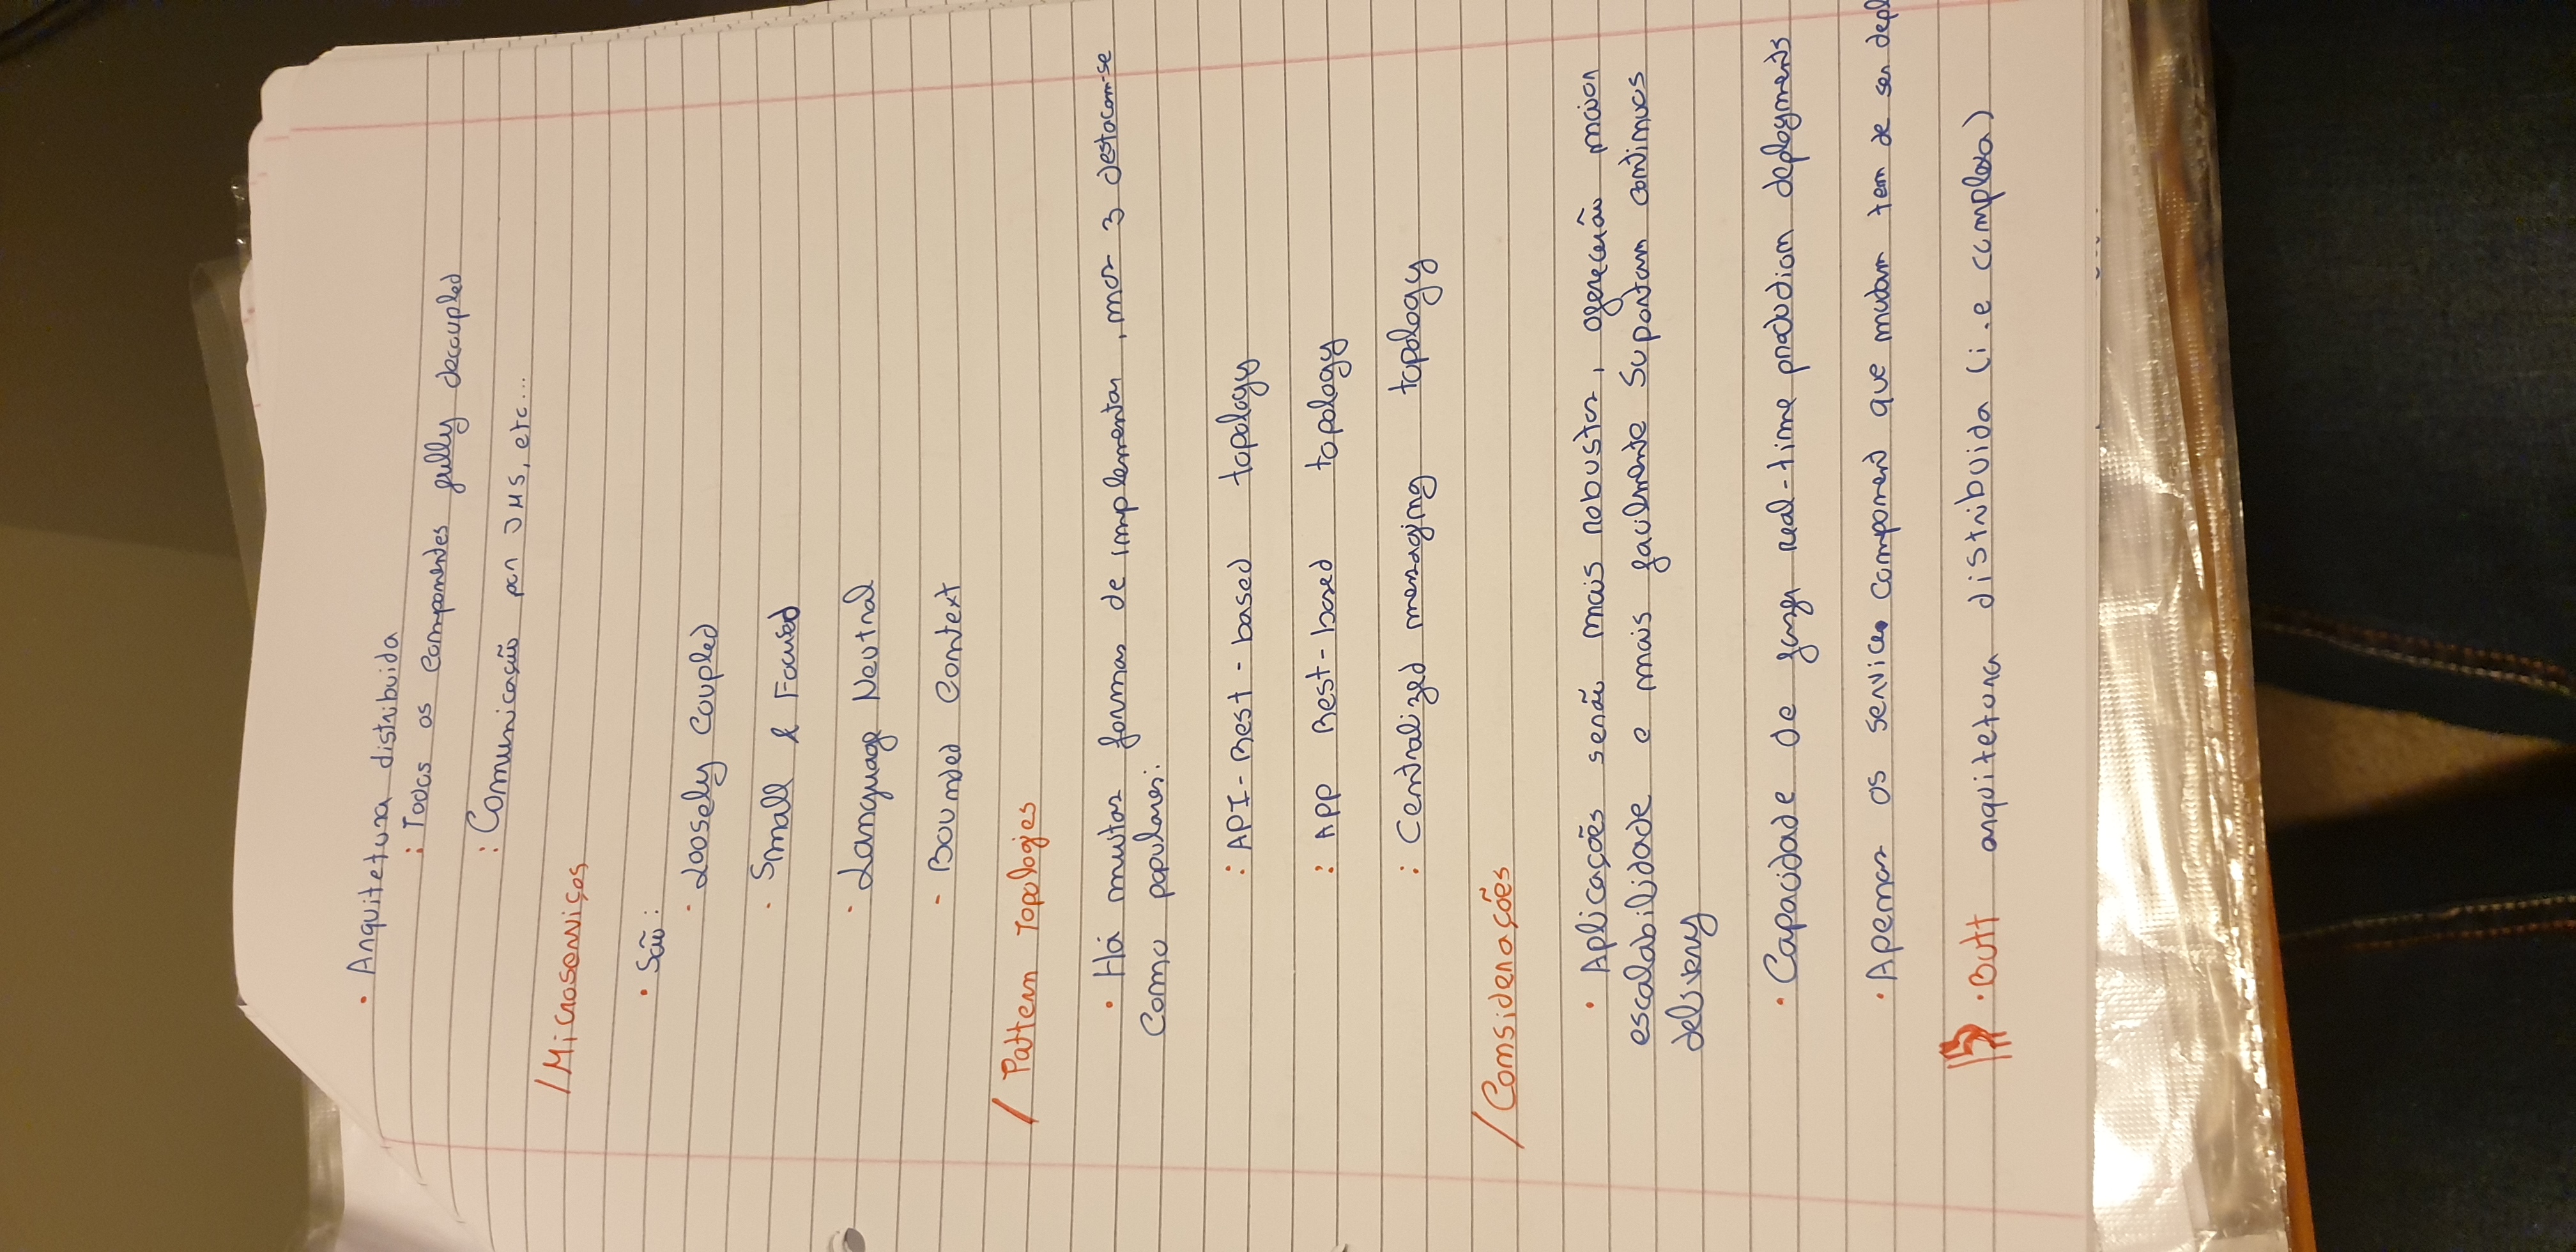 • Arquitetura distribuida
: Todos os componentes fully decoupled
: Comunicação por JMS, etc...
/ Microserviços
• São:
· Loosely Coupled
· Small & Focused
· Language Neutral
- Bounded Context
/ Pattern Topologies
• Há muitas formas de implementar, mas 3 destacam-se
como populares:
: API-Rest-based topology
: APP Rest-based topology
: Centralized messaging topology
/ Considerações
• Aplicações serão mais robustas, oferecerão maior
escalabilidade e mais facilmente suportam continuos
delivery
• Capacidade de fazer real-time production deployments
• Apenas os services component que mudam tem de ser depl
• Butt arquitetura distribuida (i.e complexa)